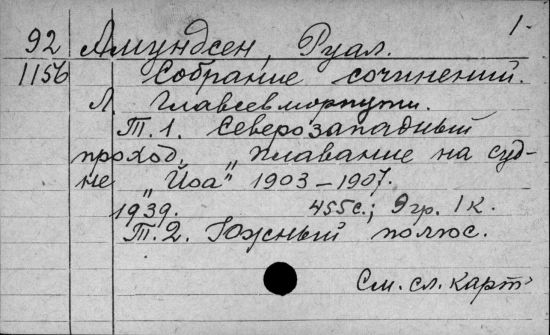 1.
92 Амундсен, Руал.
1156 Собрание сочинений.
Л. Главсевморпути.
Т. 1. Северозападный
проход, „плавание на суд-
не „Йоа" 1903–1907.
1939. 455с.; 9гр. 1к.
Т. 2. Южный полюс.
См. сл. карт